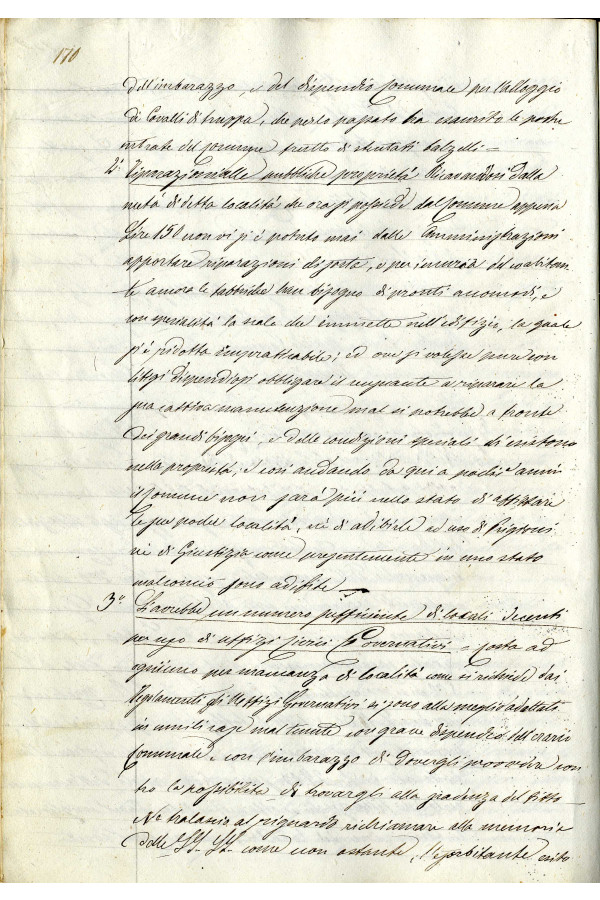 170
dell'imbarazzo, e del dispendio Comunale per l'alloggio
di Cavalli di truppa, che per lo passato ha esaurito le poche
entrate del Comune frutto di stentati balzelli =
2° Riparazioni alle pubbliche proprietà Ricavandosi dalla
metà di detta località che ora si possiede dal Comune appena
Lire 150 non vi si è potuto mai dalle Amministrazioni
apportare riparazioni di sorta, e per incuria del
ancora le fabbriche han bisogno di pronti accomodi, e
con specialità la scala che immette nell'edifizio, la quale
si è ridotta impraticabile; ed ove si volesse pure con
litigi dispendiosi obbligare il a riparare la
sua cattiva manutenzione mal si potrebbe a fronte
dei grandi bisogni, e delle condizioni speciali di
nella proprietà, e così andando da qui a pochi anni
il Comune non sarà più nello stato di affittare
le sue poche località, nè di adibirle ad uso di Prigioni
nè di Giustizia come presentemente in uno stato
malconcio sono adibite
3° S'avrebbe un numero sufficiente di locali decenti
per uso di uffizi civici Governativi = Nota ad
ognuno per mancanza di località come si richiede dai
Regolamenti gli Uffizi Governativi si sono alla meglio adattati
in umili case mal tenute con grave dispendio dell'erario
Comunale, e con l'imbarazzo di dovergli provvedere con
tro la possibilità di trovargli alla scadenza del fitto
Nè tralascia al riguardo richiamare alla memoria
delle SS. LL. come non ostante, l'esorbitante